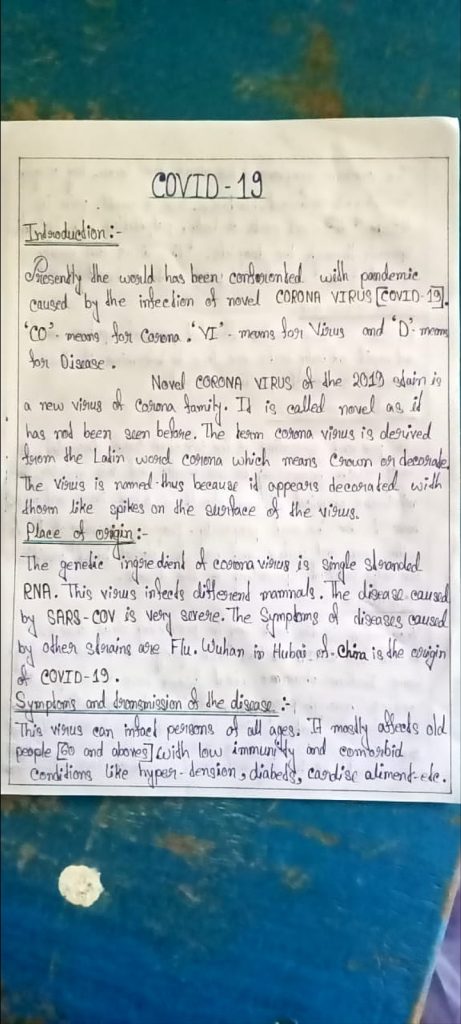 COVID-19
Introduction :-
Presently the world has been confronted with pandemic
caused by the infection of novel CORONA VIRUS [COVID-19].
'CO'- means for Corona. 'VI' - means for Virus and 'D'- means
for Disease.
Novel CORONA VIRUS of the 2019 stain is
a new virus of Corona family. It is called novel as it
has not been seen before. The term corona virus is derived
from the Latin word corona which means Crown or decorate.
The virus is named thus because it appears decorated with
thorn like spikes on the surface of the virus.
Place of origin :-
The genetic ingredient of corona virus is single stranded
RNA. This virus infects different mammals. The disease caused
by SARS-COV is very severe. The Symptoms of diseases caused
by other strains are Flu. Wuhan in Hubai of China is the origin
of COVID-19.
Symptoms and transmission of the disease :-
This virus can infect persons of all ages. It mostly affects old
people [60 and aboves] with low immunity and comorbid
Conditions like hyper-tension, diabets, cardisc aliment-etc.